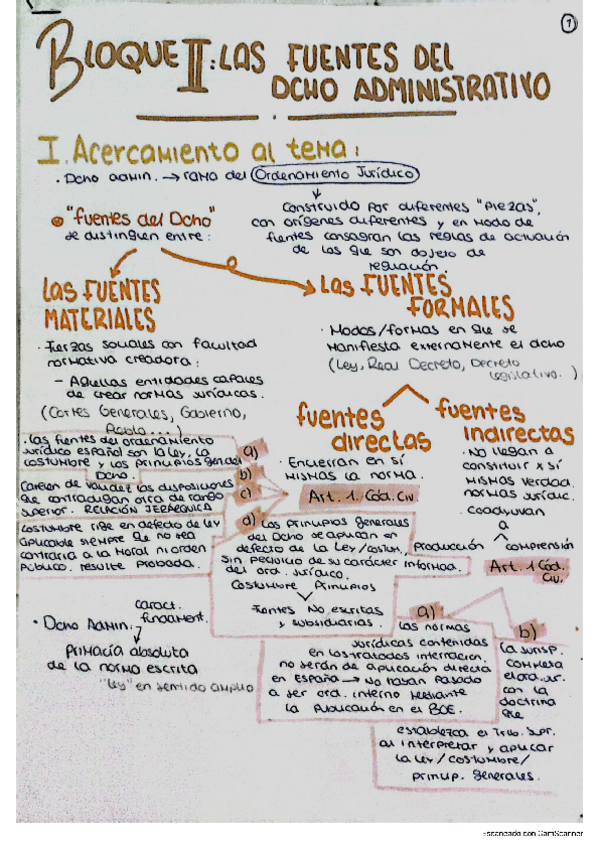 1
BLOQUE II: LAS FUENTES DEL
DCHO ADMINISTRATIVO
I. Acercamiento al tema:
· Dcho admin. → rama del Ordenamiento Jurídico
Construido por diferentes "piezas",
con orígenes diferentes y en modo de
fuentes consagran las reglas de actuación
de los que son objeto de
regulación.
"fuentes del Dcho"
se distinguen entre:
Las FUENTES
MATERIALES
· Fuerzas sociales con facultad
normativa creadora:
- Aquellas entidades capaces
de crear normas jurídicas.
(Cortes Generales, Gobierno,
Pueblo...)
Las FUENTES
FORMALES
· Modos/formas en que se
manifiesta externamente el dcho
(Ley, Real Decreto, Decreto
Legislativo.)
fuentes
directas
· Encierran en sí
mismas la norma.
Art. 1. Cód. Civ
fuentes
indirectas
· No llegan a
constituir x sí
mismas verdad.
normas jurídic.
· Coadyuvan
a
producción comprensión
Art. 1 Cód.
Civ.
a)
· Las fuentes del ordenamiento
jurídico español son la ley, la
costumbre y los principios general
Dcho.
b)
Carecen de validez las disposiciones
que contradigan otra de rango
superior. RELACIÓN JERÁRQUICA
c)
Costumbre rige en defecto de ley
aplicable siempre que no sea
contraria a la moral ni orden
público. resulte probada.
d) Los principios generales
del Dcho se aplican en
defecto de la ley/costum,
sin perjuicio de su carácter informad.
del ord. jurídico.
Costumbre Principios
Fuentes No escritas
y subsidiarias.
· Dcho Admin.
caract.
fundament.
primacía absoluta
de la norma escrita
"ley" en sentido amplio
a)
Las normas
jurídicas contenidas
en los tratados internacion.
no serán de aplicación directa
en España → No hayan pasado
a ser ord. interno mediante
la publicación en el BOE.
b)
La jurisp.
completa
el ord. jur.
con la
doctrina
que
establezca el Trib. Supr.
al interpretar y aplicar
la ley/costumbre/
princip. generales.
Escaneado con CamScanner